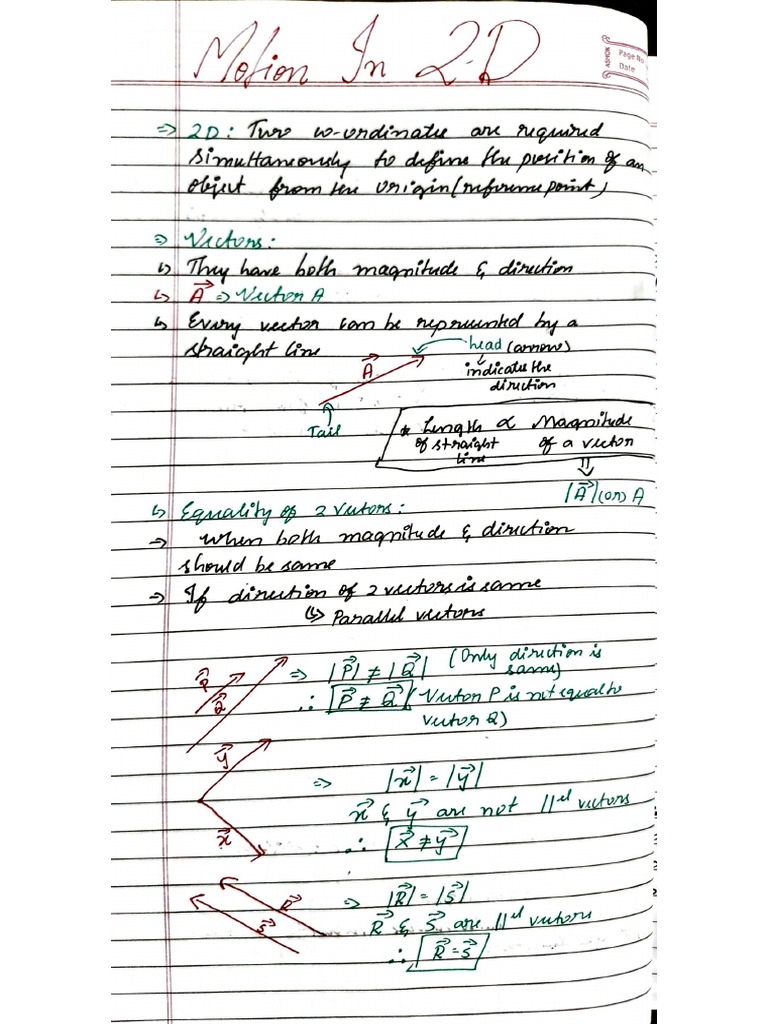 Motion In 2-D
ASHOK
Page No
Date
⇒ 2D: Two co-ordinates are required
simultaneously to define the position of an
object from the origin (reference point)
⇒ Vectors:
↳ They have both magnitude & direction
↳ A⃗ ⇒ Vector A
↳ Every vector can be represented by a
straight line
head (arrow)
↓
indicates the
direction
A⃗
Tail
* Length ∝ Magnitude
of straight of a vector
line
⇓
|A⃗| (or) A
↳ Equality of 2 vectors:
→ When both magnitude & direction
should be same
⇒ If direction of 2 vectors is same
↳ Parallel vectors
P⃗
Q⃗
⇒ |P⃗| ≠ |Q⃗| (Only direction is
same)
∴ P⃗ ≠ Q⃗ (Vector P is not equal to
vector Q)
y⃗
x⃗
⇒ |x⃗| = |y⃗|
x⃗ & y⃗ are not ||el vectors
∴ x⃗ ≠ y⃗
R⃗
S⃗
⇒ |R⃗| = |S⃗|
R⃗ & S⃗ are ||el vectors
∴ R⃗ = S⃗